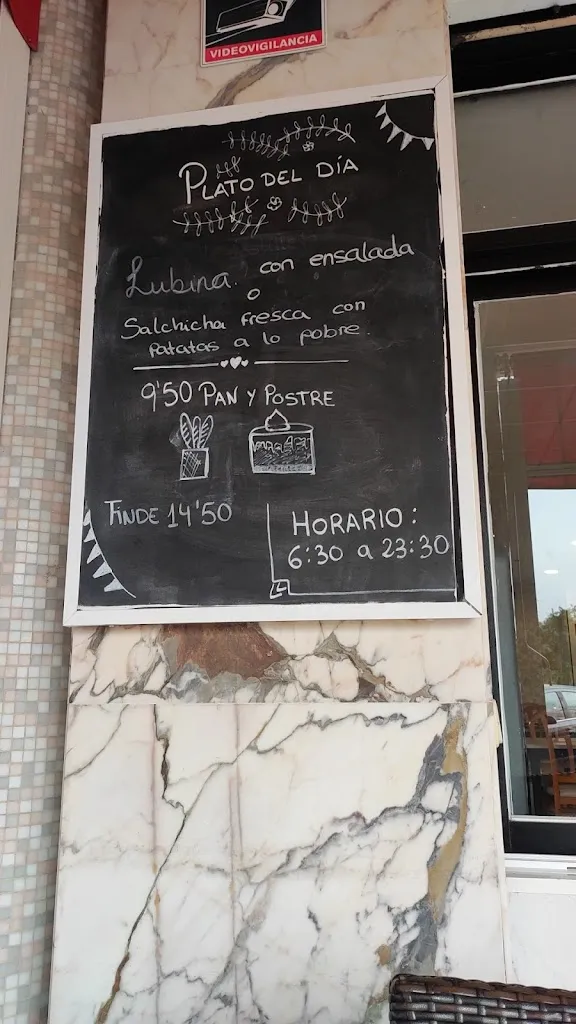 VIDEOVIGILANCIA
PLATO DEL DÍA
Lubina. con ensalada
o
Salchicha fresca con
patatas a lo pobre.
9'50 PAN Y POSTRE
FINDE 14'50
HORARIO:
6:30 a 23:30